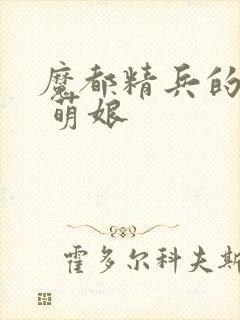 魔都精兵的
萌娘
霍多尔科夫斯